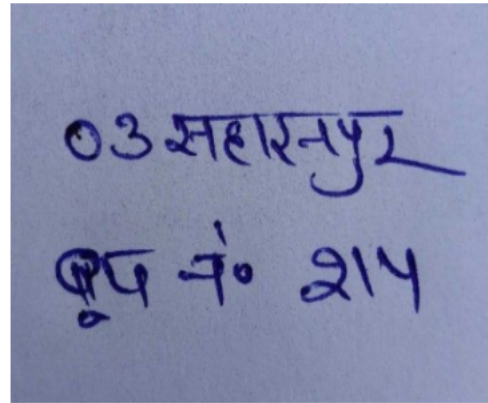 03 सहारनपुर
बूथ नं० 214